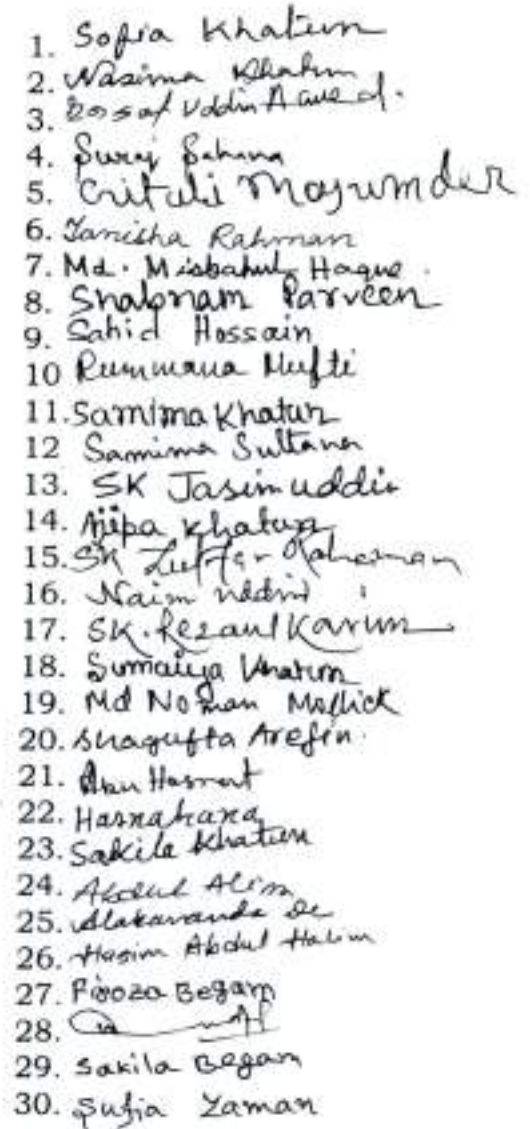 1. Sofia Khatun
2. Nasima Khatun
3. Uddin
4. Suraj Sahana
5. Majumder
6. Tanisha Rahman
7. Md. Misbahul Haque.
8. Shabnam Parveen
9. Sahid Hossain
10 Rummana Mufti
11. Samima Khatun
12 Samima Sultana
13. SK Jasimuddin
14. Khatun
15. SK
16. Naim uddin
17. SK. Rezaul Karim
18. Sumaiya Khatun
19. Md Noman Mollick
20. Shagufta Arefin.
21. Abu Hasnat
22. Hasnahana
23. Sakila Khatun
24. Abdul Alim
25. Alakananda De
26. Hasim Abdul Halim
27. Firoza Begam
28.
29. Sakila Begam
30. Sufia Zaman